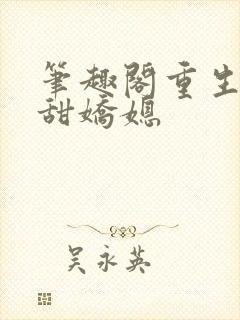 筆趣閣重生
甜嬌媳
吴永英